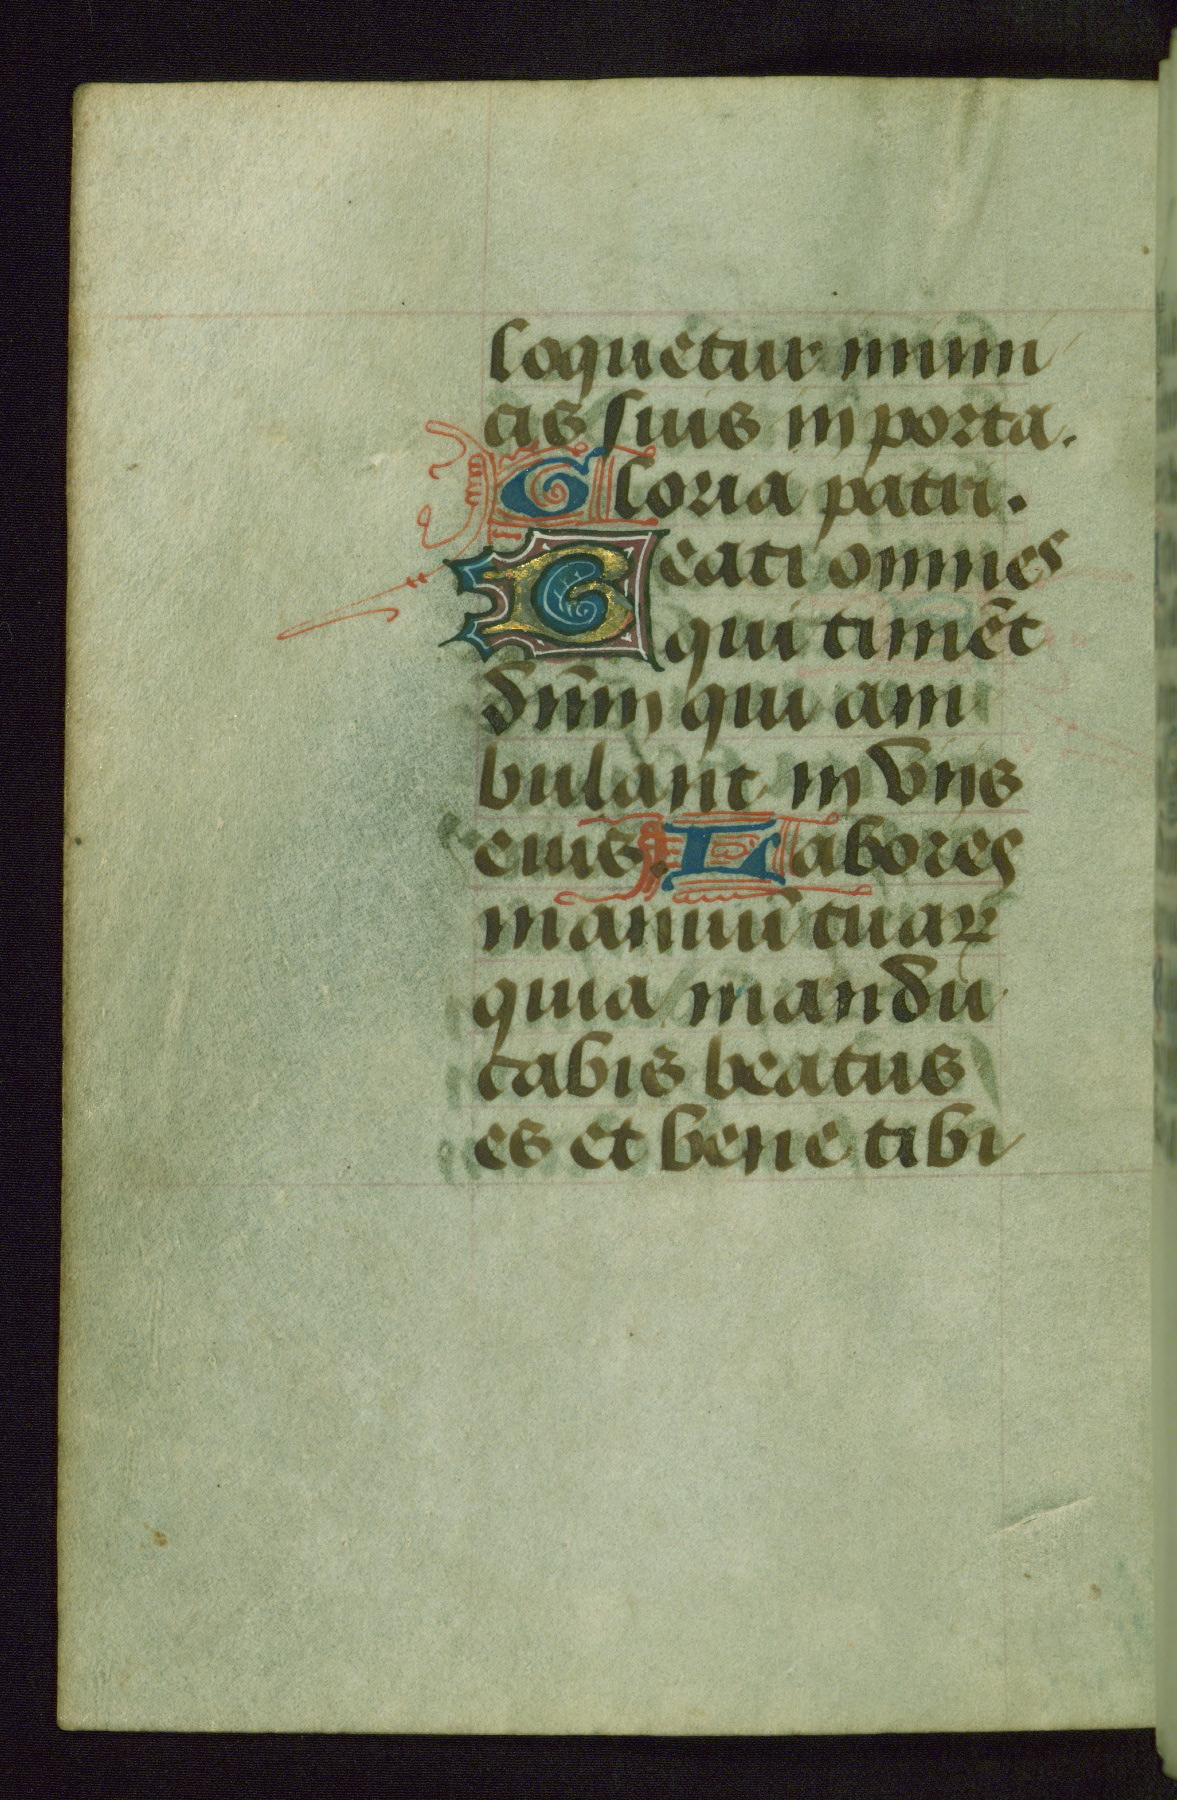 loquetur inimi
cis suis in porta.
Gloria patri.
Beati omnes
qui timẽt
dñm qui am
bulant in viis
eius. Labores
manuũ tuaꝝ
quia mandu
cabis beatus
es et bene tibi